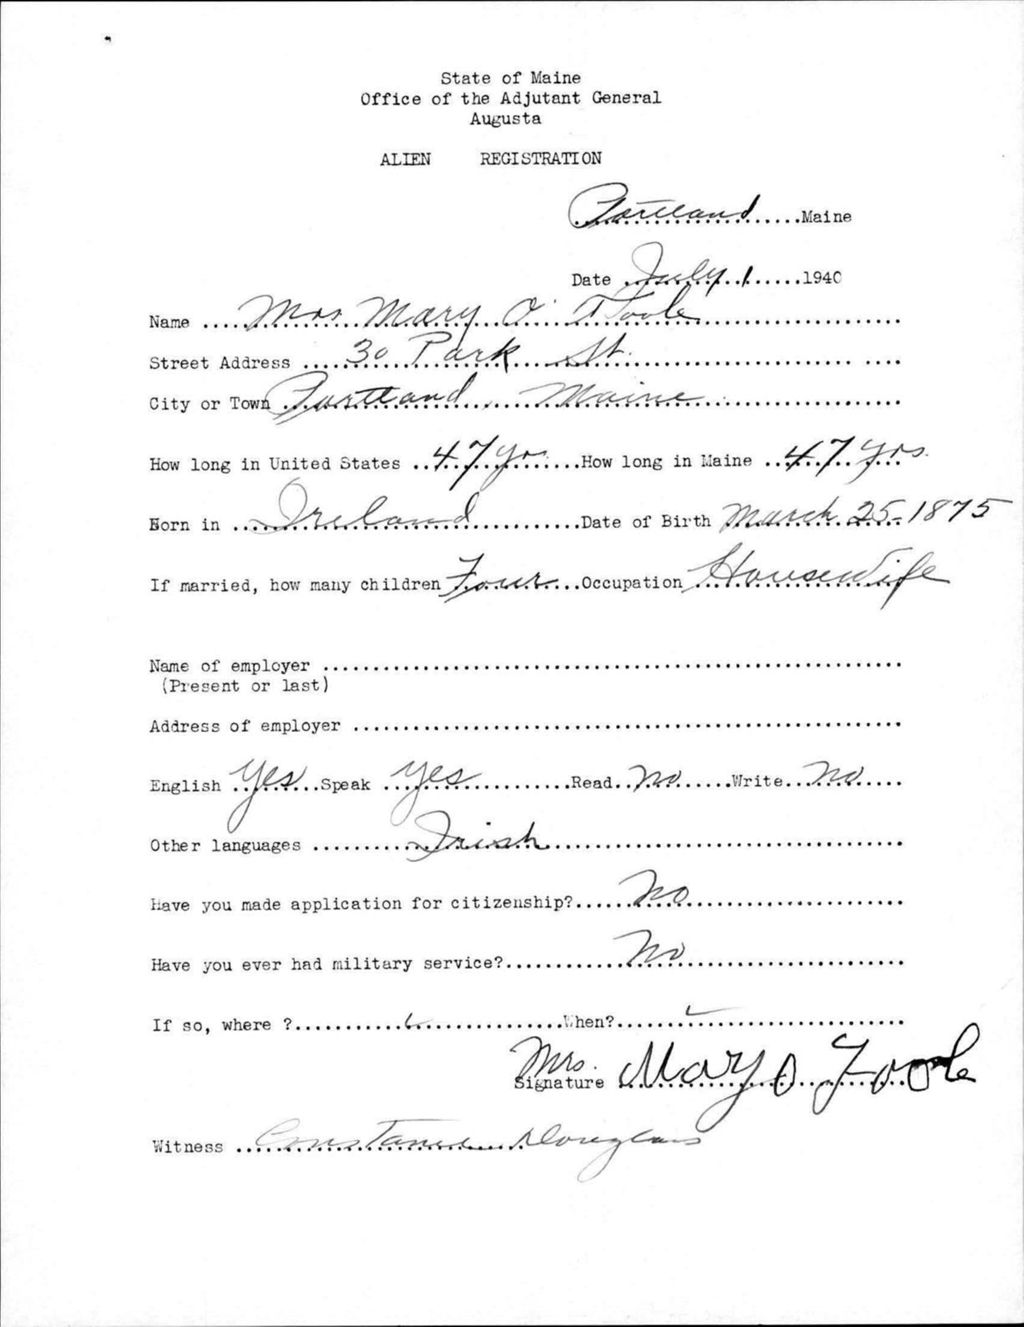 State of Maine
Office of the Adjutant General
Augusta
ALIEN REGISTRATION
Portland......Maine
Date July 1......1940
Name ....Mrs. Mary O'Toole.....................
Street Address ....30 Park St. ....
City or Town Portland, Maine.....................
How long in United States ..47 yrs.....How long in Maine ..47 yrs.
Born in ..Ireland............Date of Birth March 25-1875
If married, how many children Four...Occupation Housewife
Name of employer ..........................................................
(Present or last)
Address of employer .......................................................
English Yes...Speak ..yes............Read..No......Write..No.....
Other languages ..........Irish....................................
Have you made application for citizenship?......No......................
Have you ever had military service?............No......................
If so, where ?.............................When?.............................
Mrs.
Signature Mary O Toole
Witness ..Constance Douglass